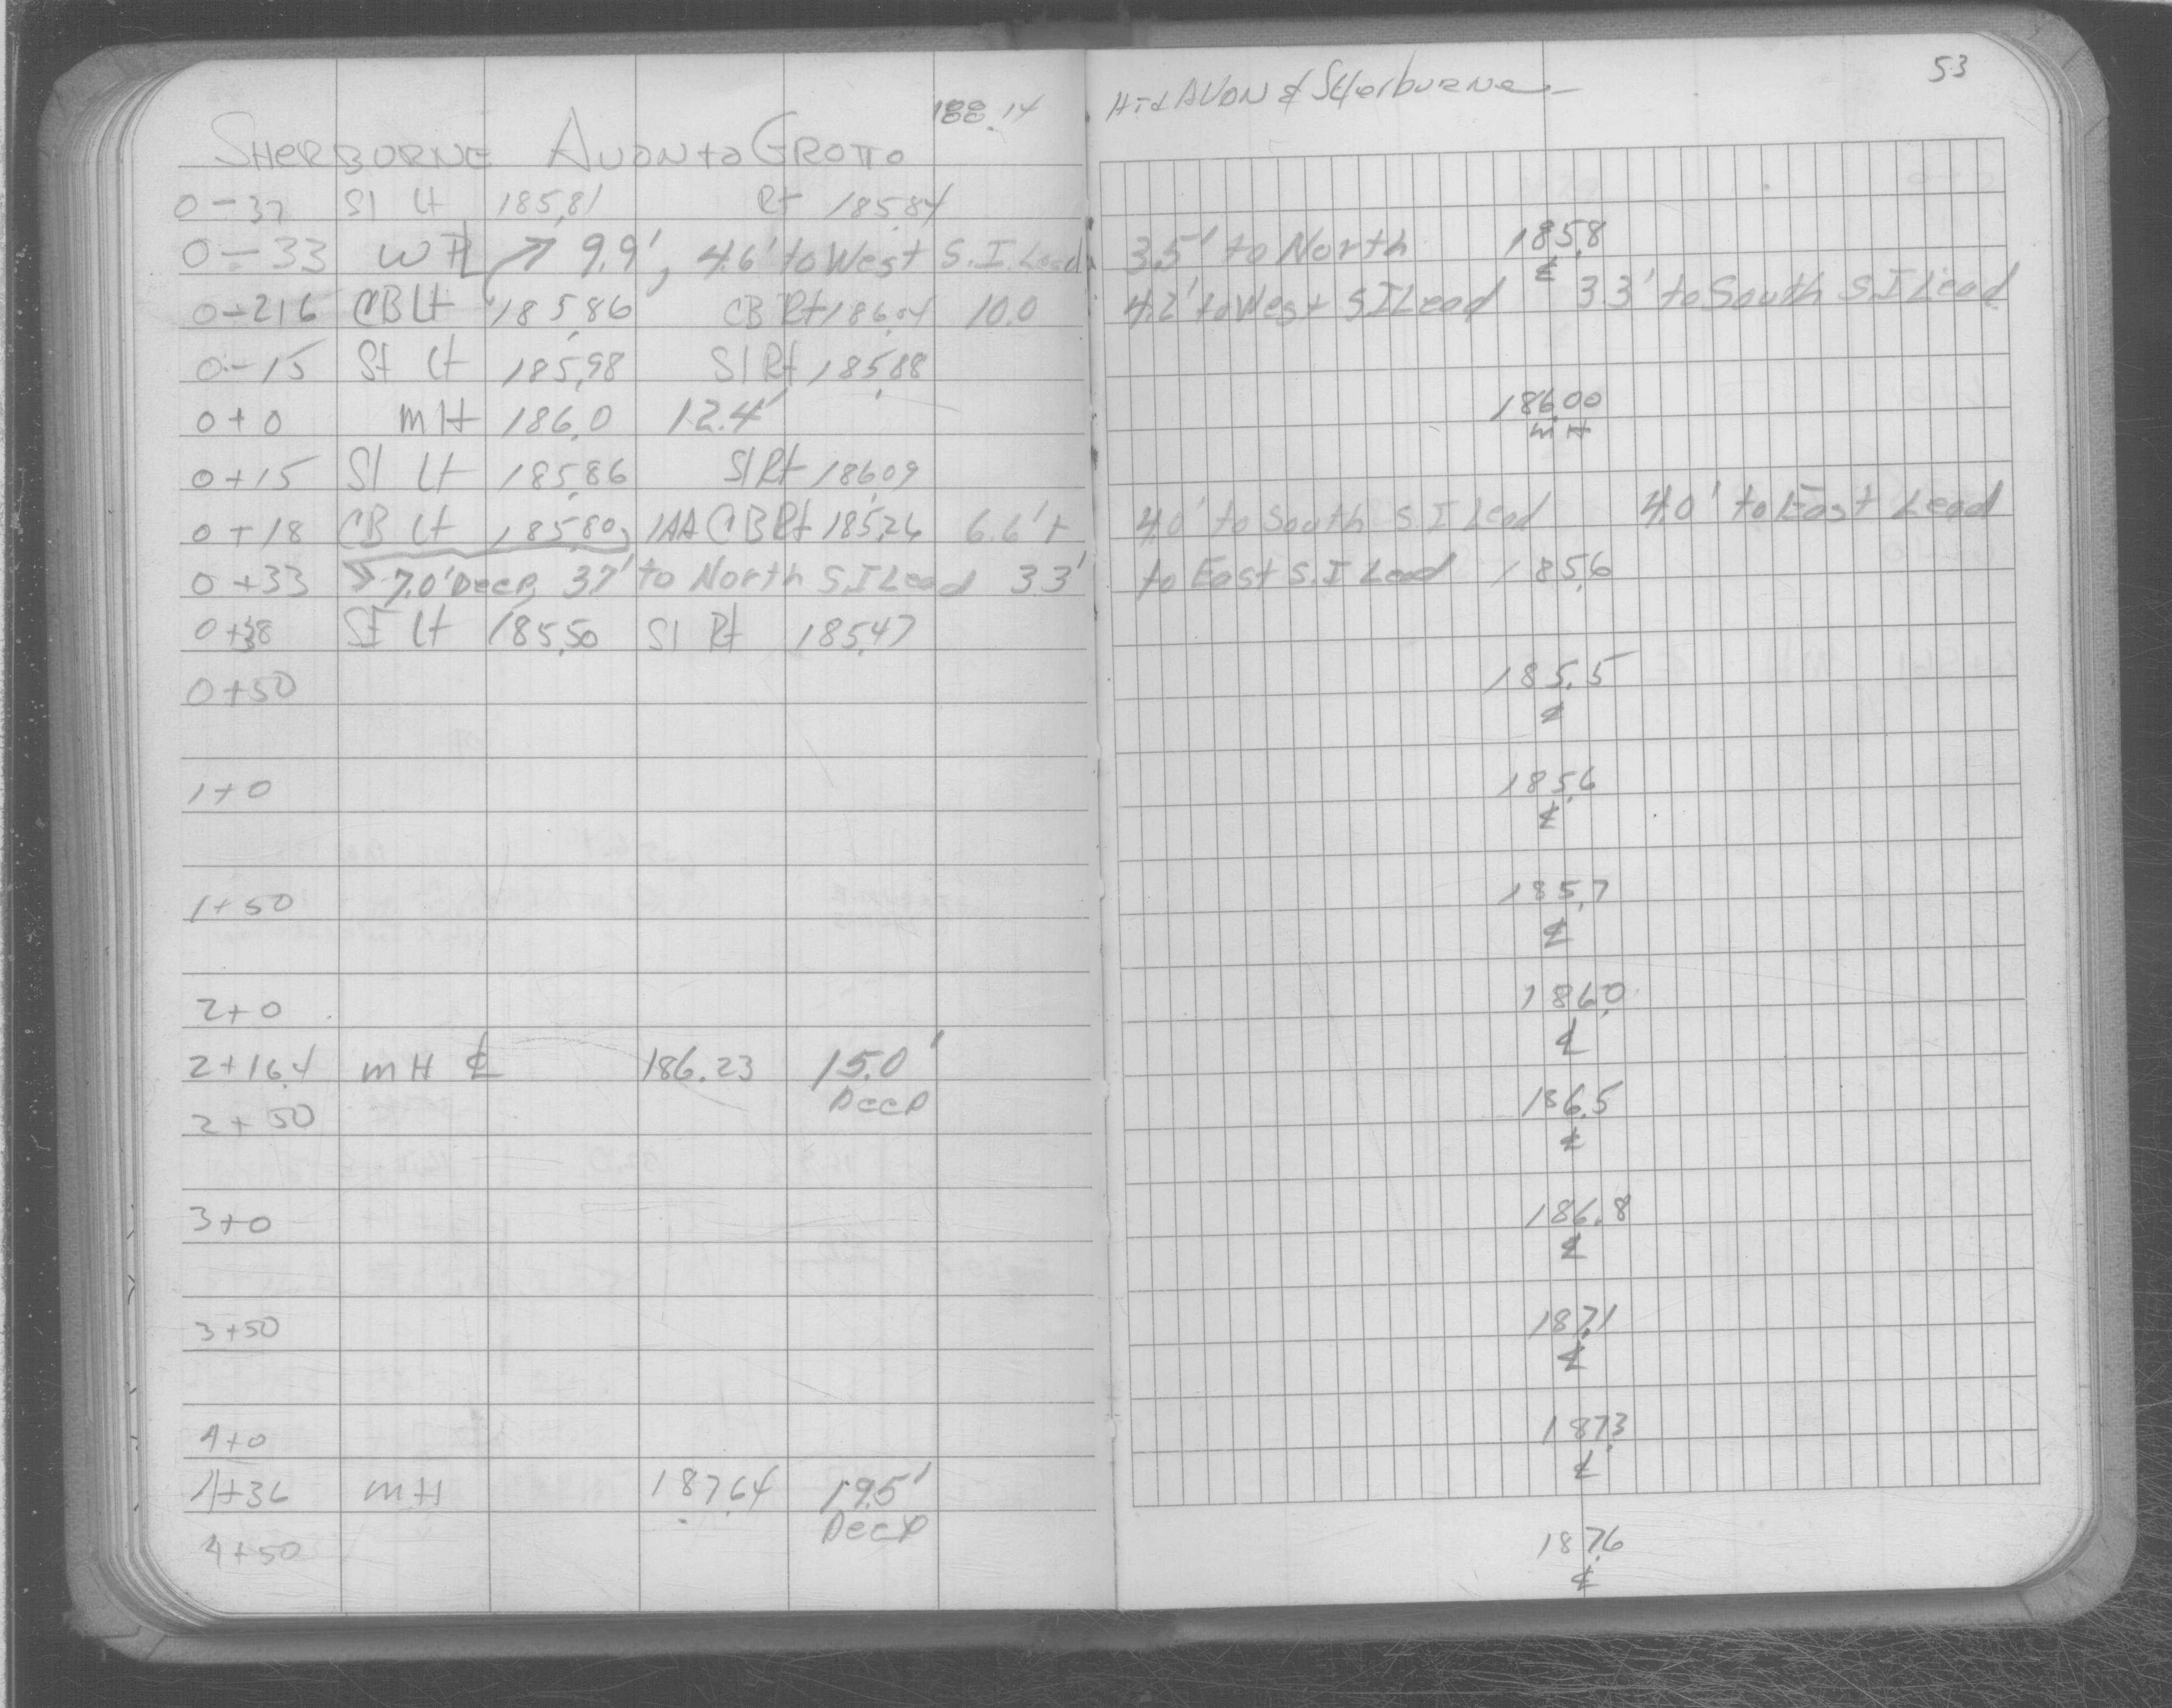 188.14
SHERBURNE AVON to GROTTO
0-37 Sl Lt 185.81 Rt 185.84
0-33 W PL 9.9', 4.6' to West S.I. Lead
0-21.6 CB Lt 185.86 CB Rt 186.04 10.0
0-15 Sl Lt 185.98 Sl Rt 185.88
0+0 MH 186.0 12.4'
0+15 Sl Lt 185.86 Sl Rt 186.09
0+18 CB Lt 185.80, CB Rt 185.26 6.6'
0+33 7.0' Deep, 3.7' to North S.I Lead 3.3'
0+38 Sl Lt 185.50 Sl Rt 185.47
0+50
1+0
1+50
2+0
2+16.4 MH ℄ 186.23 15.0'
Deep
2+50
3+0
3+50
4+0
4+36 MH 187.64 19.5'
Deep
4+50
53
AVON & Sherburne
3.5' to North 185.8
℄
4.2' to West S I Lead 3.3' to South S.I Lead
186.00
MH
4.0' to South S.I Lead 4.0' to East Lead
to East S.I Lead 185.6
185.5
℄
185.6
℄
185.7
℄
186.0
℄
186.5
℄
186.8
℄
187.1
℄
187.3
℄
187.6
℄